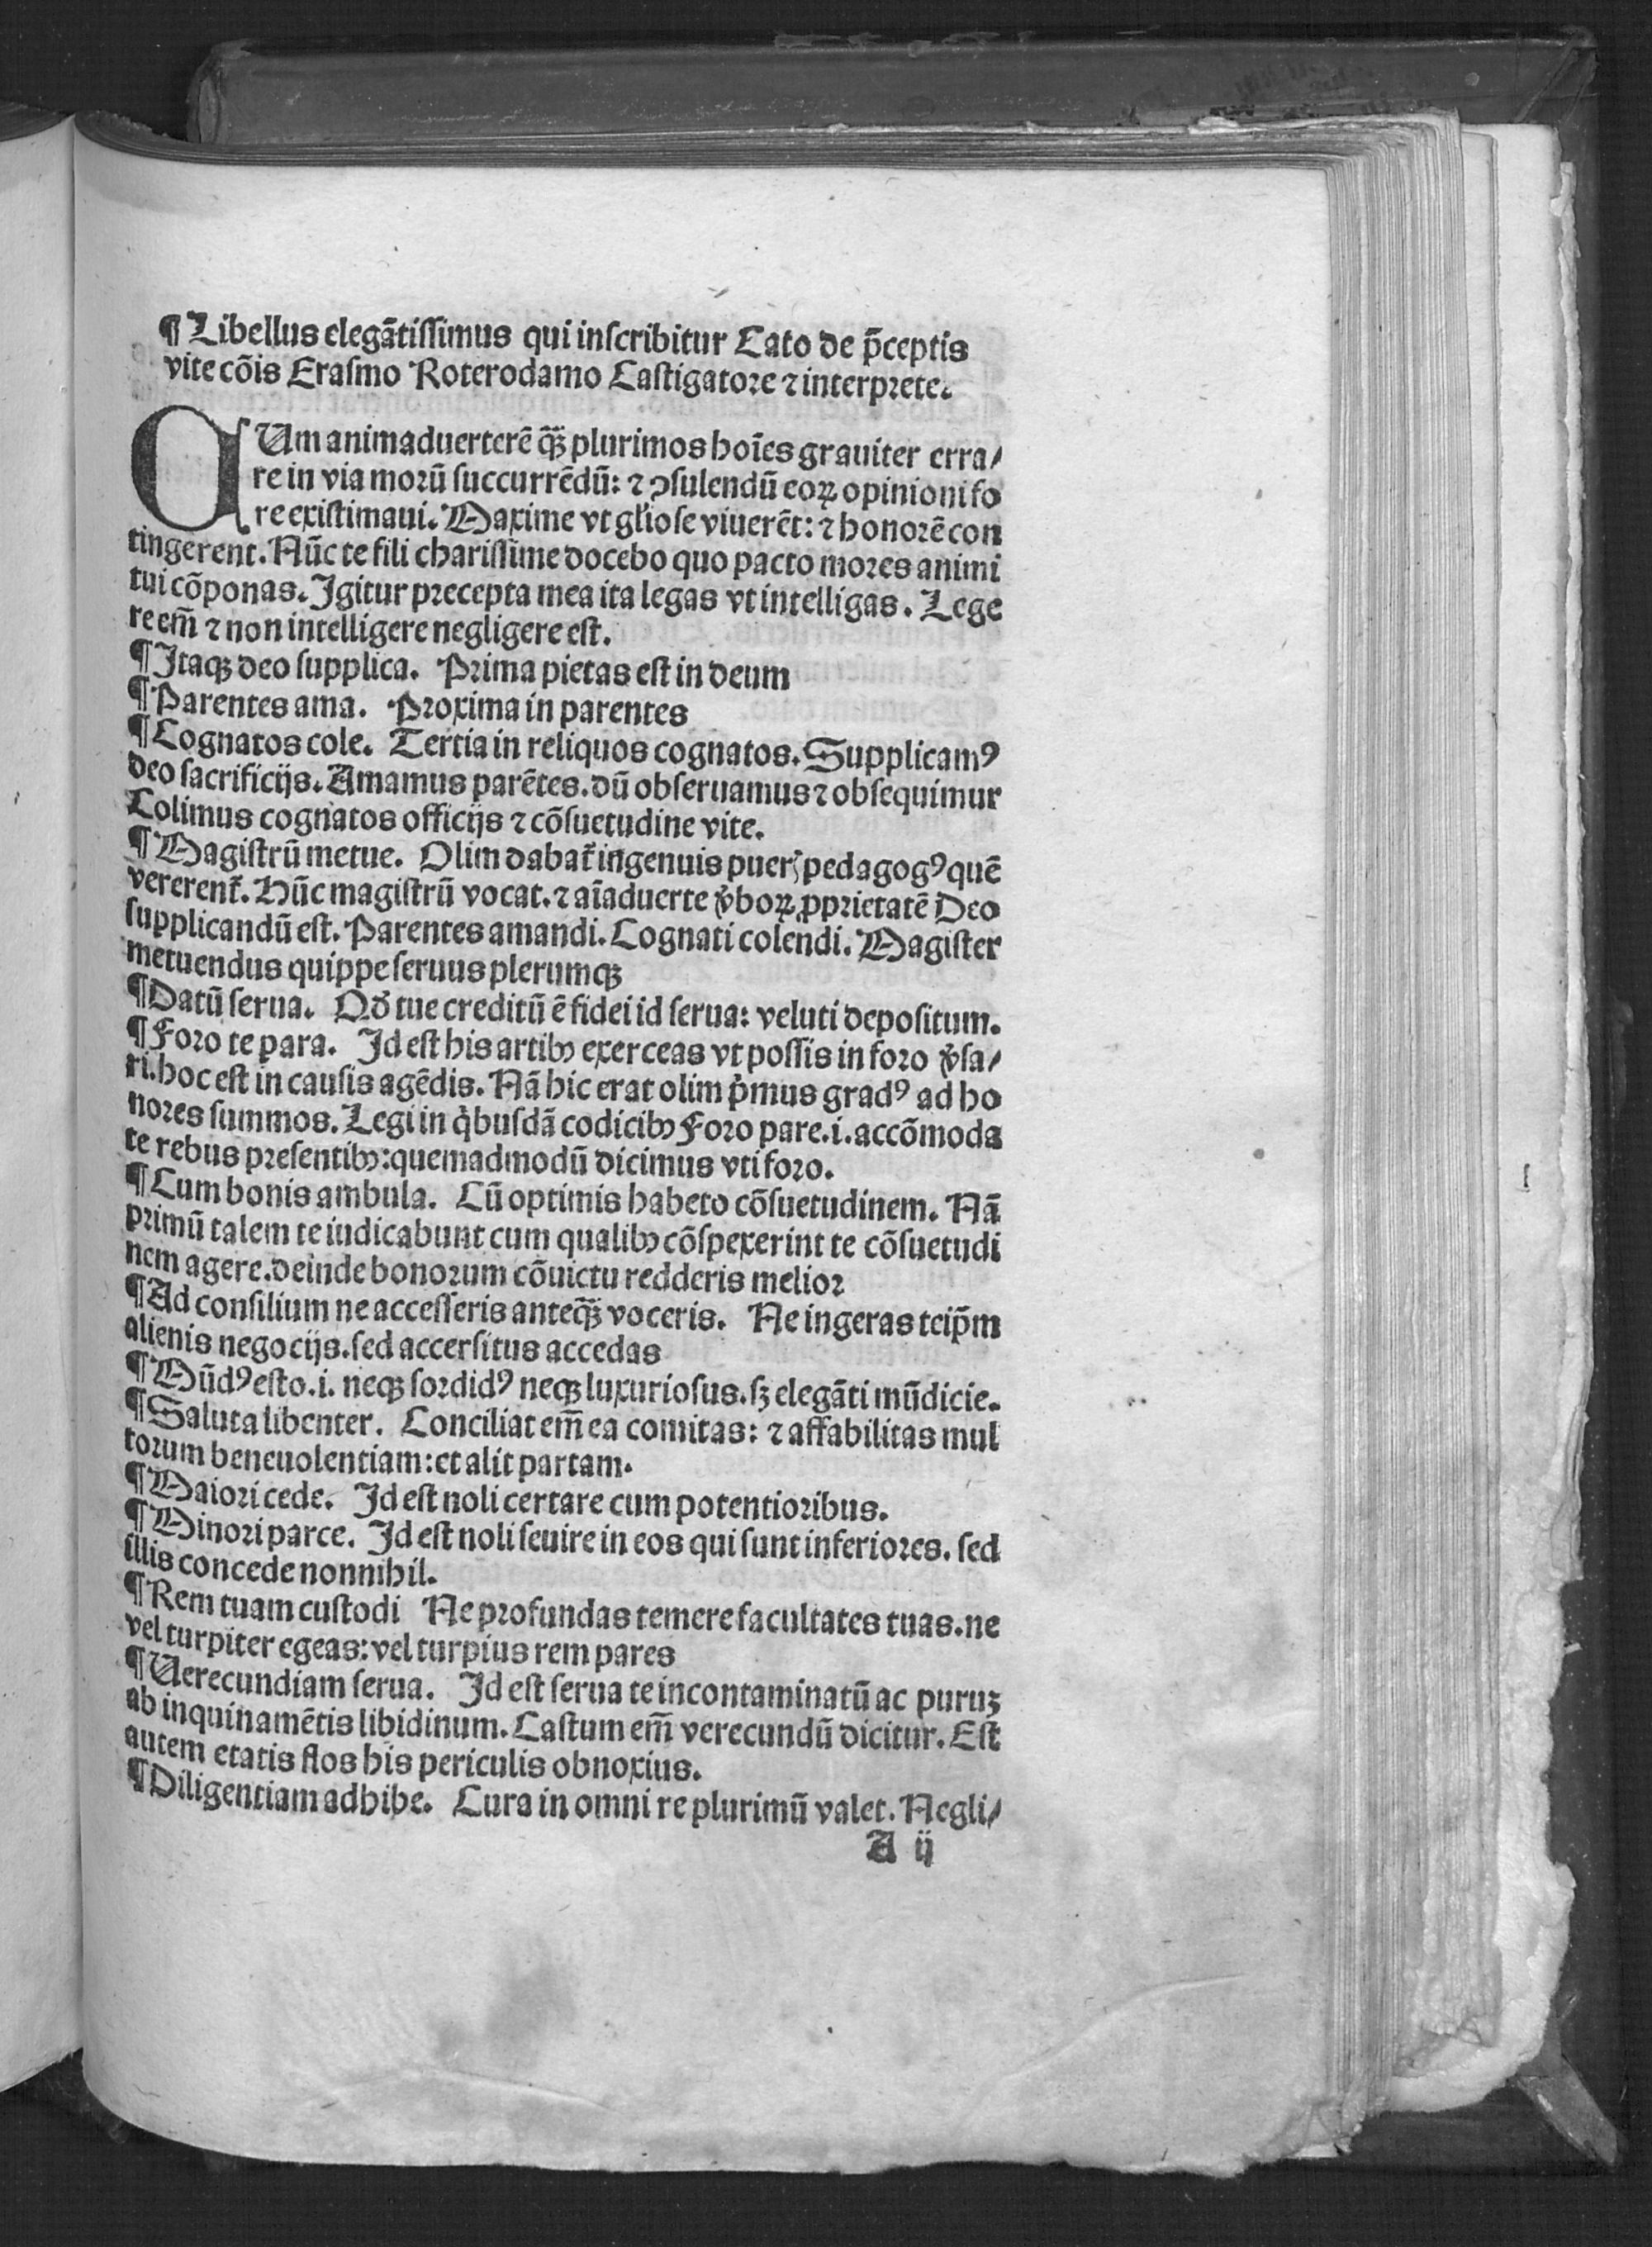 ¶ Libellus elegãtissimus qui inscribitur Cato de p̃ceptis
vite cõis Erasmo Roterodamo Castigatore ⁊ interprete.
QUm animaduerterẽ q̃ꝫ plurimos hoĩes grauiter erra/
re in via morũ succurrẽdũ: ⁊ ꝯsulendũ eoꝝ opinioni fo
re existimaui. Maxime vt gl'iose viuerẽt: ⁊ honorẽ con
tingerent. Nũc te fili charissime docebo quo pacto mores animi
tui cõponas. Igitur precepta mea ita legas vt intelligas. Lege
re em̃ ⁊ non intelligere negligere est.
¶ Itaqꝫ deo supplica. Prima pietas est in deum
¶ Parentes ama. Proxima in parentes
¶ Cognatos cole. Tertia in reliquos cognatos. Supplicamꝰ
deo sacrificijs. Amamus parẽtes. dũ obseruamus ⁊ obsequimur
Colimus cognatos officijs ⁊ cõsuetudine vite.
¶ Magistrũ metue. Olim dabat᷑ ingenuis puerꝭ pedagogꝰ quẽ
vererent᷑. Hũc magistrũ vocat. ⁊ aĩaduerte v̾boꝝ ꝓprietatẽ Deo
supplicandũ est. Parentes amandi. Cognati colendi. Magister
metuendus quippe seruus plerumqꝫ
¶ Datũ serua. Qð tue creditũ ẽ fidei id serua: veluti depositum.
¶ Foro te para. Id est his artibꝰ exerceas vt possis in foro v̾sa/
ri. hoc est in causis agẽdis. Nã hic erat olim p̾mus gradꝰ ad ho
nores summos. Legi in q̾busdã codicibꝰ Foro pare. i. accõmoda
te rebus presentibꝰ: quemadmodũ dicimus vti foro.
¶ Cum bonis ambula. Cũ optimis habeto cõsuetudinem. Nã
primũ talem te iudicabunt cum qualibꝰ cõspexerint te cõsuetudi
nem agere. deinde bonorum cõuictu redderis melior
¶ Ad consilium ne accesseris anteq̃ꝫ voceris. Ne ingeras teip̃m
alienis negocijs. sed accersitus accedas
¶ Mũdꝰ esto. i. neqꝫ sordidꝰ neqꝫ luxuriosus. sꝫ elegãti mũdicie.
¶ Saluta libenter. Conciliat em̃ ea comitas: ⁊ affabilitas mul
torum beneuolentiam: et alit partam.
¶ Maiori cede. Id est noli certare cum potentioribus.
¶ Minori parce. Id est noli seuire in eos qui sunt inferiores. sed
illis concede nonnihil.
¶ Rem tuam custodi Ne profundas temere facultates tuas. ne
vel turpiter egeas: vel turpius rem pares
¶ Uerecundiam serua. Id est serua te incontaminatũ ac puruꝫ
ab inquinamẽtis libidinum. Castum em̃ verecundũ dicitur. Est
autem etatis flos his periculis obnoxius.
¶ Diligentiam adhibe. Cura in omni re plurimũ valet. Negli/
A ij